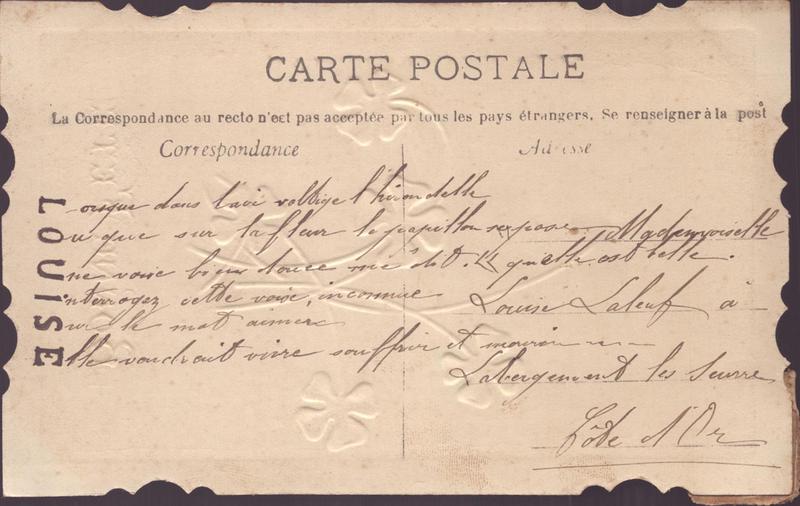 CARTE POSTALE
La Correspondance au recto n'est pas acceptée par tous les pays étrangers. Se renseigner à la poste
Correspondance
Adresse
LOUISE
orsque dans l'air voltige l'hirondelle
u que sur la fleur le papillon se pose
ne voix bien douce me dit qu'elle est belle.
nterrogez cette voix, inconnue
ur le mot aimer
lle voudrait vivre souffrir et mourir
Mademoiselle
Louise Laleuf à
Labergement les Seurre
Côte d'Or